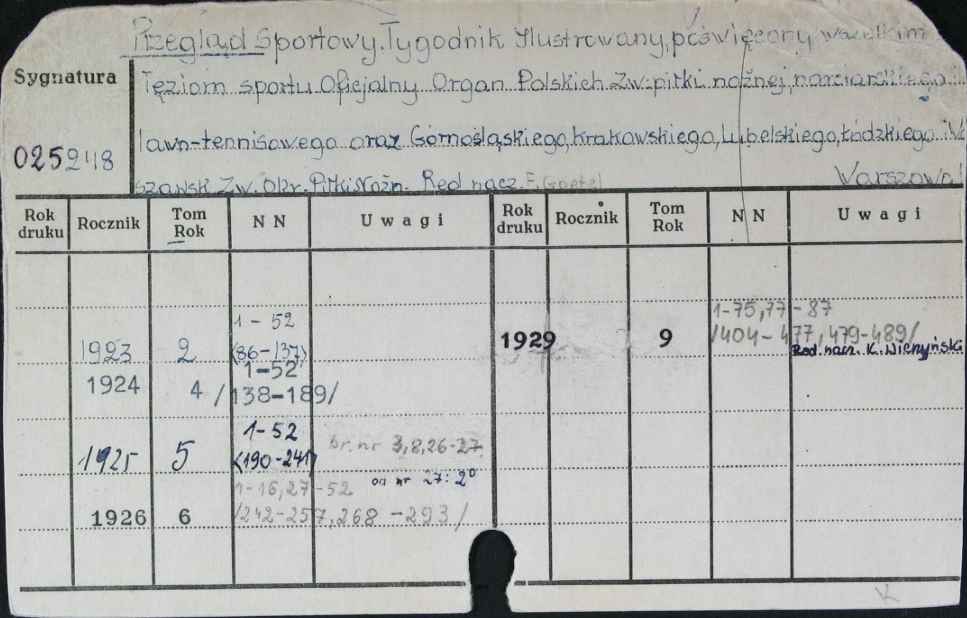 Przegląd Sportowy. Tygodnik Ilustrowany, poświęcony wszelkim
Sygnatura
łęziom sportu Oficjalny Organ Polskich Zw. piłki nożnej, narciarskiego
lawn-tennisowego oraz Górnośląskiego, Krakowskiego, Lubelskiego, Łódzkiego
025248
szawsk Zw. Okr. Piłki Nożn. Red nacz. F. Goetel Warszawa
Rok druku Rocznik Tom Rok N N Uwagi Rok druku Rocznik Tom Rok N N Uwagi
1-52 1-75,77-87
1923 2 (86-137) 1929 9 /404-477,479-489/
Red. nacz. K. Wierzyński
1-52
1924 4 /138-189/
1-52 br. nr 3,8,26-27
1925 5 (190-241)
od nr 27: 2°
1-16,27-52
1926 6 /242-257,268-293/
K